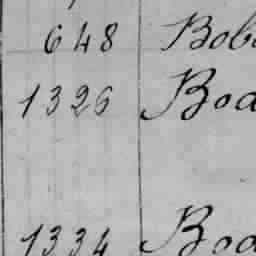 648 Bob
1326 Boa
1334 Boa